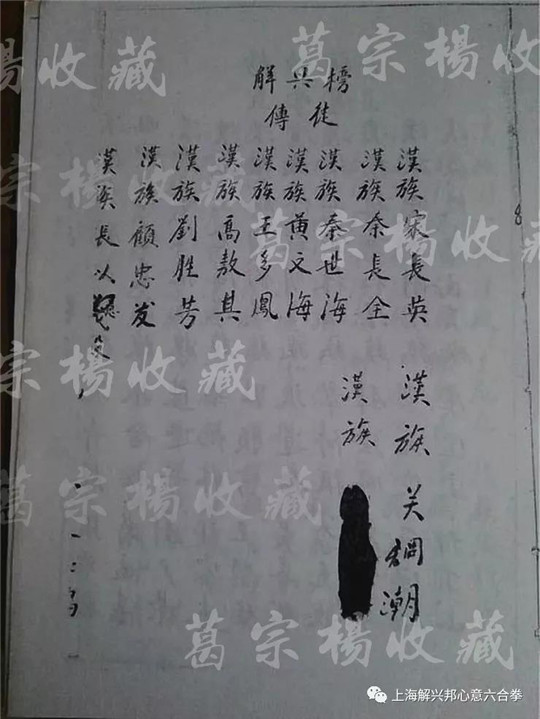 解兴榜
傳徒
漢族宋長英
漢族余長全
漢族秦世海
漢族黄文海
漢族王多鳳
漢族高敖其
漢族劉胜芳
漢族顧忠发
漢族長以
漢族 关 潮
漢族
葛宗楊收藏
葛宗楊收藏
葛宗楊收藏
葛宗楊收藏
葛宗楊收藏
上海解兴邦心意六合拳